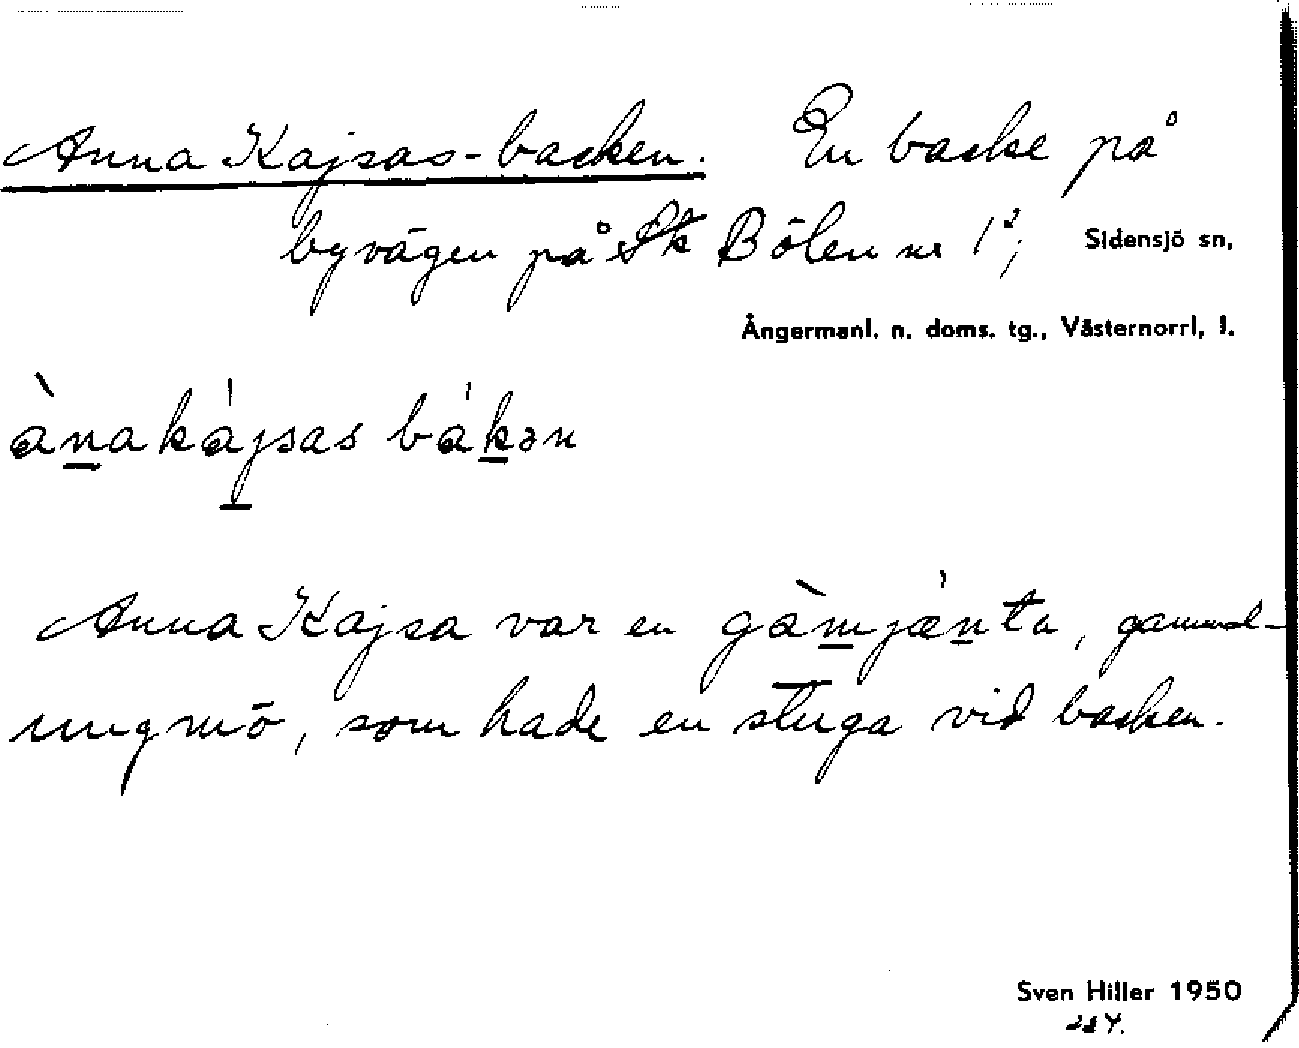 Anna Kajsas-backen. En backe på
byvägen på Bölen nr 1²; Sidensjö sn,
Ångermanl. n. doms. tg., Västernorrl, l.
ànakájsas bákən
Anna Kajsa var en gàmjænta, gammal-
ungmö, som hade en stuga vid backen.
Sven Hiller 1950